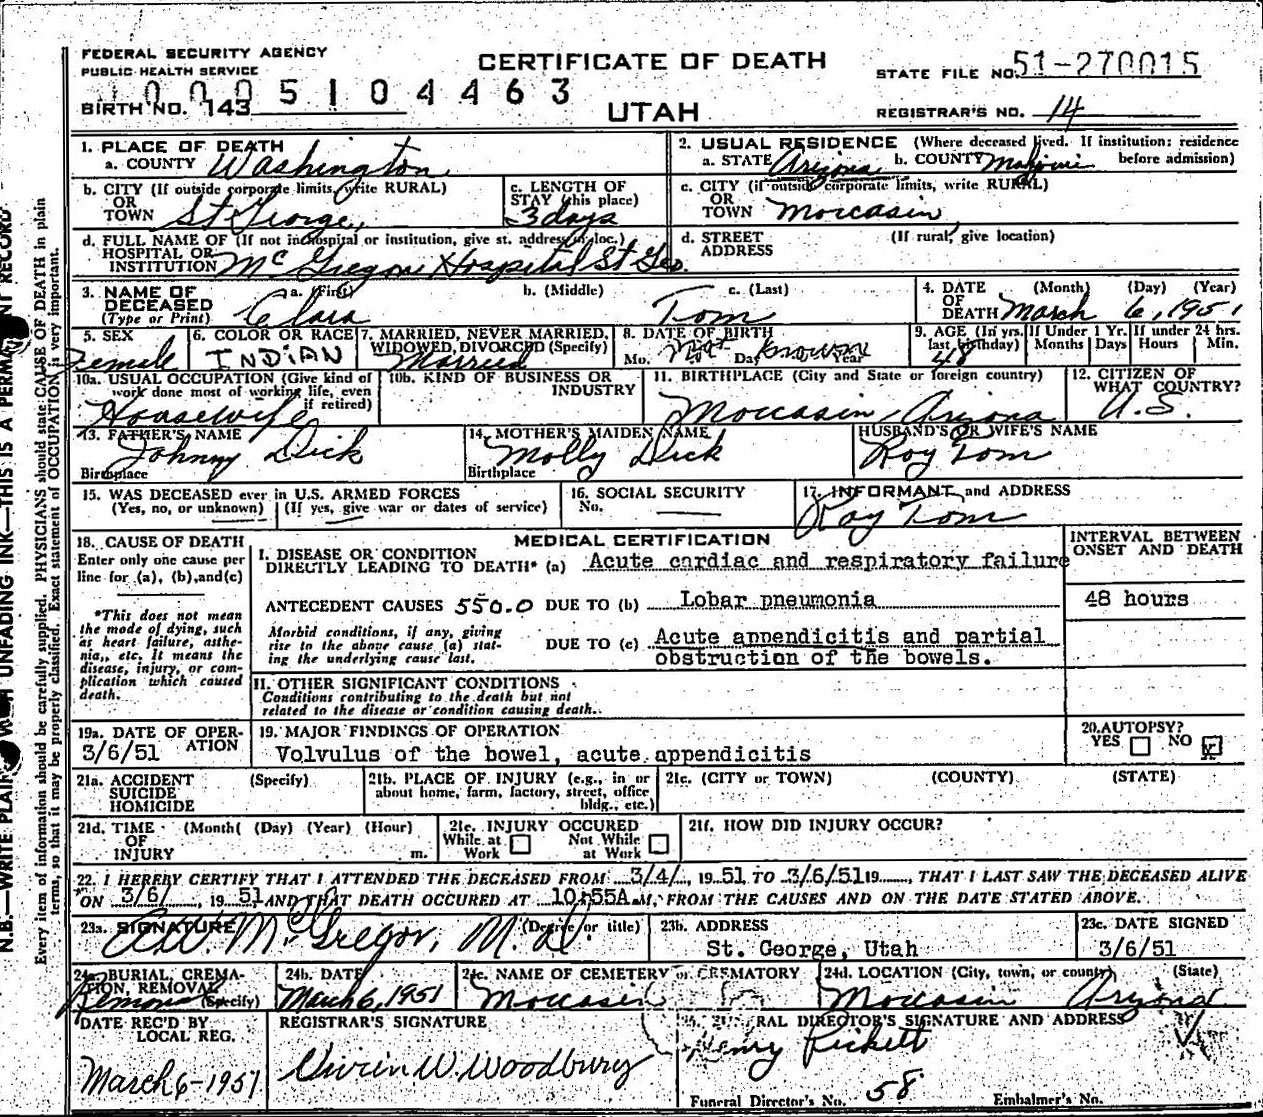 FEDERAL SECURITY AGENCY
PUBLIC HEALTH SERVICE
CERTIFICATE OF DEATH
STATE FILE NO. 51-270015
0005104463
BIRTH NO. 143
UTAH
REGISTRAR'S NO. 14
1. PLACE OF DEATH
a. COUNTY Washington
2. USUAL RESIDENCE (Where deceased lived. If institution: residence before admission)
a. STATE Arizona b. COUNTY
b. CITY (If outside corporate limits, write RURAL) OR TOWN St George,
c. LENGTH OF STAY (this place) 3 days
c. CITY (if outside corporate limits, write RURAL) OR TOWN Moccasin
d. FULL NAME OF (If not in hospital or institution, give st. address or loc.) HOSPITAL OR INSTITUTION Mc Gregor Hospital St Geo.
d. STREET ADDRESS (If rural, give location)
3. NAME OF DECEASED (Type or Print) a. (First) Clara b. (Middle) c. (Last) Tom
4. DATE OF DEATH (Month) (Day) (Year) March 6, 1951
5. SEX Female
6. COLOR OR RACE INDIAN
7. MARRIED, NEVER MARRIED, WIDOWED, DIVORCED (Specify) Married
8. DATE OF BIRTH Mo. Day Year Not known
9. AGE (In yrs. last birthday) 48 If Under 1 Yr. Months Days If under 24 hrs. Hours Min.
10a. USUAL OCCUPATION (Give kind of work done most of working life, even if retired) Housewife
10b. KIND OF BUSINESS OR INDUSTRY
11. BIRTHPLACE (City and State or foreign country) Moccasin, Arizona
12. CITIZEN OF WHAT COUNTRY? U.S.
13. FATHER'S NAME Johnny Dick
Birthplace
14. MOTHER'S MAIDEN NAME Molly Dick
Birthplace
HUSBAND'S OR WIFE'S NAME Roy Tom
15. WAS DECEASED ever in U.S. ARMED FORCES
(Yes, no, or unknown) (If yes, give war or dates of service)
16. SOCIAL SECURITY No.
17. INFORMANT and ADDRESS Ray Tom
18. CAUSE OF DEATH
Enter only one cause per line for (a), (b), and (c)
*This does not mean the mode of dying, such as heart failure, asthenia, etc. It means the disease, injury, or complication which caused death.
MEDICAL CERTIFICATION
INTERVAL BETWEEN ONSET AND DEATH
I. DISEASE OR CONDITION DIRECTLY LEADING TO DEATH* (a) Acute cardiac and respiratory failure
ANTECEDENT CAUSES 550.0 DUE TO (b) Lobar pneumonia 48 hours
Morbid conditions, if any, giving rise to the above cause (a) stating the underlying cause last.
DUE TO (c) Acute appendicitis and partial obstruction of the bowels.
II. OTHER SIGNIFICANT CONDITIONS
Conditions contributing to the death but not related to the disease or condition causing death.
19a. DATE OF OPERATION 3/6/51
19. MAJOR FINDINGS OF OPERATION
Volvulus of the bowel, acute appendicitis
20. AUTOPSY? YES NO x
21a. ACCIDENT SUICIDE HOMICIDE (Specify)
21b. PLACE OF INJURY (e.g., in or about home, farm, factory, street, office bldg., etc.)
21c. (CITY or TOWN) (COUNTY) (STATE)
21d. TIME OF INJURY (Month) (Day) (Year) (Hour) m.
21e. INJURY OCCURED While at Work Not While at Work
21f. HOW DID INJURY OCCUR?
22. I HEREBY CERTIFY THAT I ATTENDED THE DECEASED FROM 3/4/, 19 51 TO 3/6/51 19, THAT I LAST SAW THE DECEASED ALIVE
ON 3/6/, 19 51 AND THAT DEATH OCCURED AT 10:55A.M, FROM THE CAUSES AND ON THE DATE STATED ABOVE.
23a. SIGNATURE (Degree or title) A.W. McGregor, M.D.
23b. ADDRESS St. George, Utah
23c. DATE SIGNED 3/6/51
24a. BURIAL, CREMATION, REMOVAL (Specify) Removal
24b. DATE March 6, 1951
24c. NAME OF CEMETERY or CREMATORY Moccasin
24d. LOCATION (City, town, or county) (State) Moccasin Arizona
DATE REC'D BY LOCAL REG. March 6-1951
REGISTRAR'S SIGNATURE Vivien W. Woodbury
RAL DIRECTOR'S SIGNATURE AND ADDRESS Henry Pickett
Funeral Director's No. 58 Embalmer's No.
N.B.—WRITE PLAIN UNFADING INK—THIS IS A PERMANENT RECORD
Every item of information should be carefully supplied. PHYSICIANS should state CAUSE OF DEATH in plain
terms, so that it may be properly classified. Exact statement of OCCUPATION is very important.